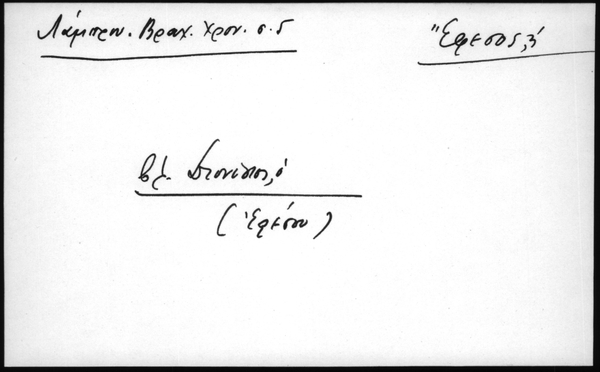 Λάμπρου. Βραχ. Χρον. σ. 5
Ἔφεσος, ἡ
βλ. Διονύσιος, ὁ
(Ἐφέσου)